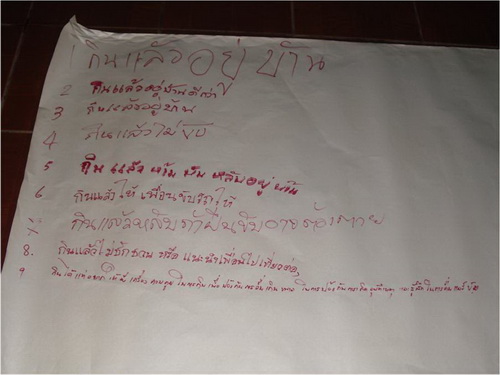 1 กินแล้วอยู่บ้าน
2 กินแล้วอยู่บ้านดีกว่า
3 กินแล้วอยู่บ้าน
4 กินแล้วไม่ขับ
5 กินแล้ว ห้าม ขับ หลับอยู่บ้าน
6 กินแล้วให้เพื่อนขับรถให้
7. กินแล้วหลับถ้าฝืนขับอาจต้องตาย
8. กินแล้วไม่ชักชวน หรือ แนะนำเพื่อนไปเที่ยวต่อ
9